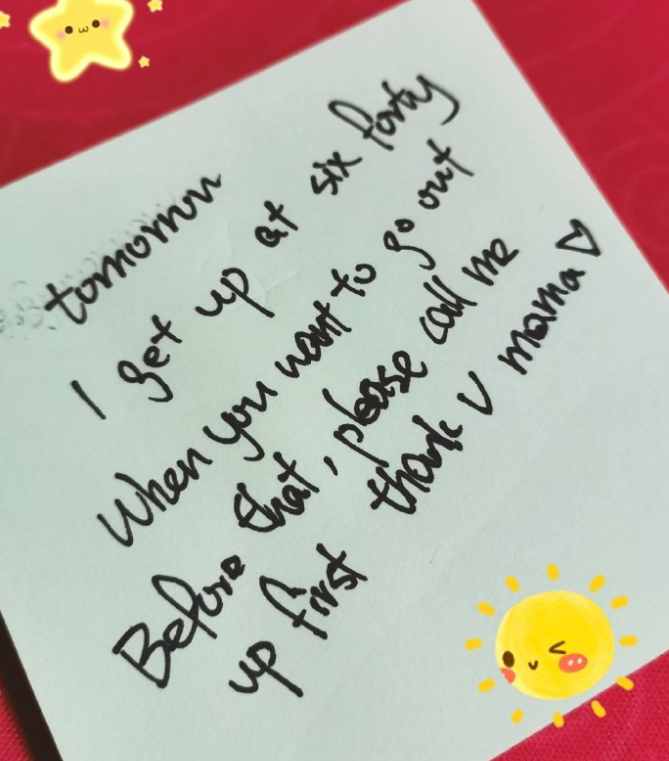 tomorrow
I get up at six forty
When you want to go out
Before that, please call me
up first thank U mama